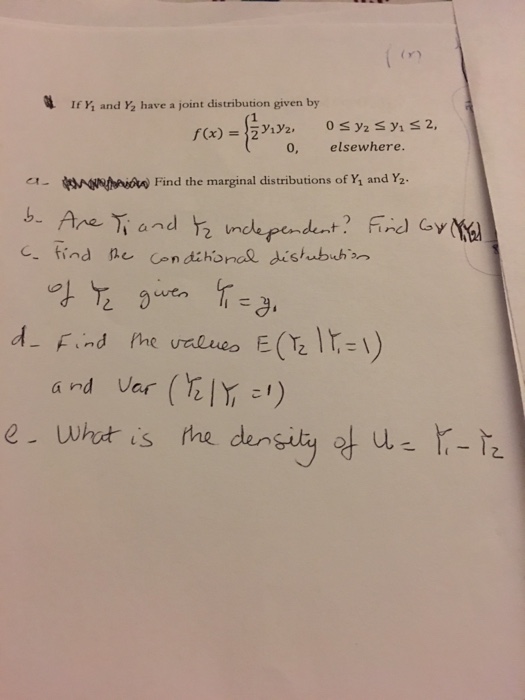 If Y₁ and Y₂ have a joint distribution given by
f(x) = { ½ y₁y₂, 0 ≤ y₂ ≤ y₁ ≤ 2,
0, elsewhere.
a- Find the marginal distributions of Y₁ and Y₂.
b- Are Y₁ and Y₂ independent? Find Cov(Y₁Y₂)
c- Find the conditional distribution
of Y₂ given Y₁ = y₁
d- Find the values E(Y₂|Y₁=1)
and Var (Y₂|Y₁ =1)
e- What is the density of U = Y₁ - Y₂